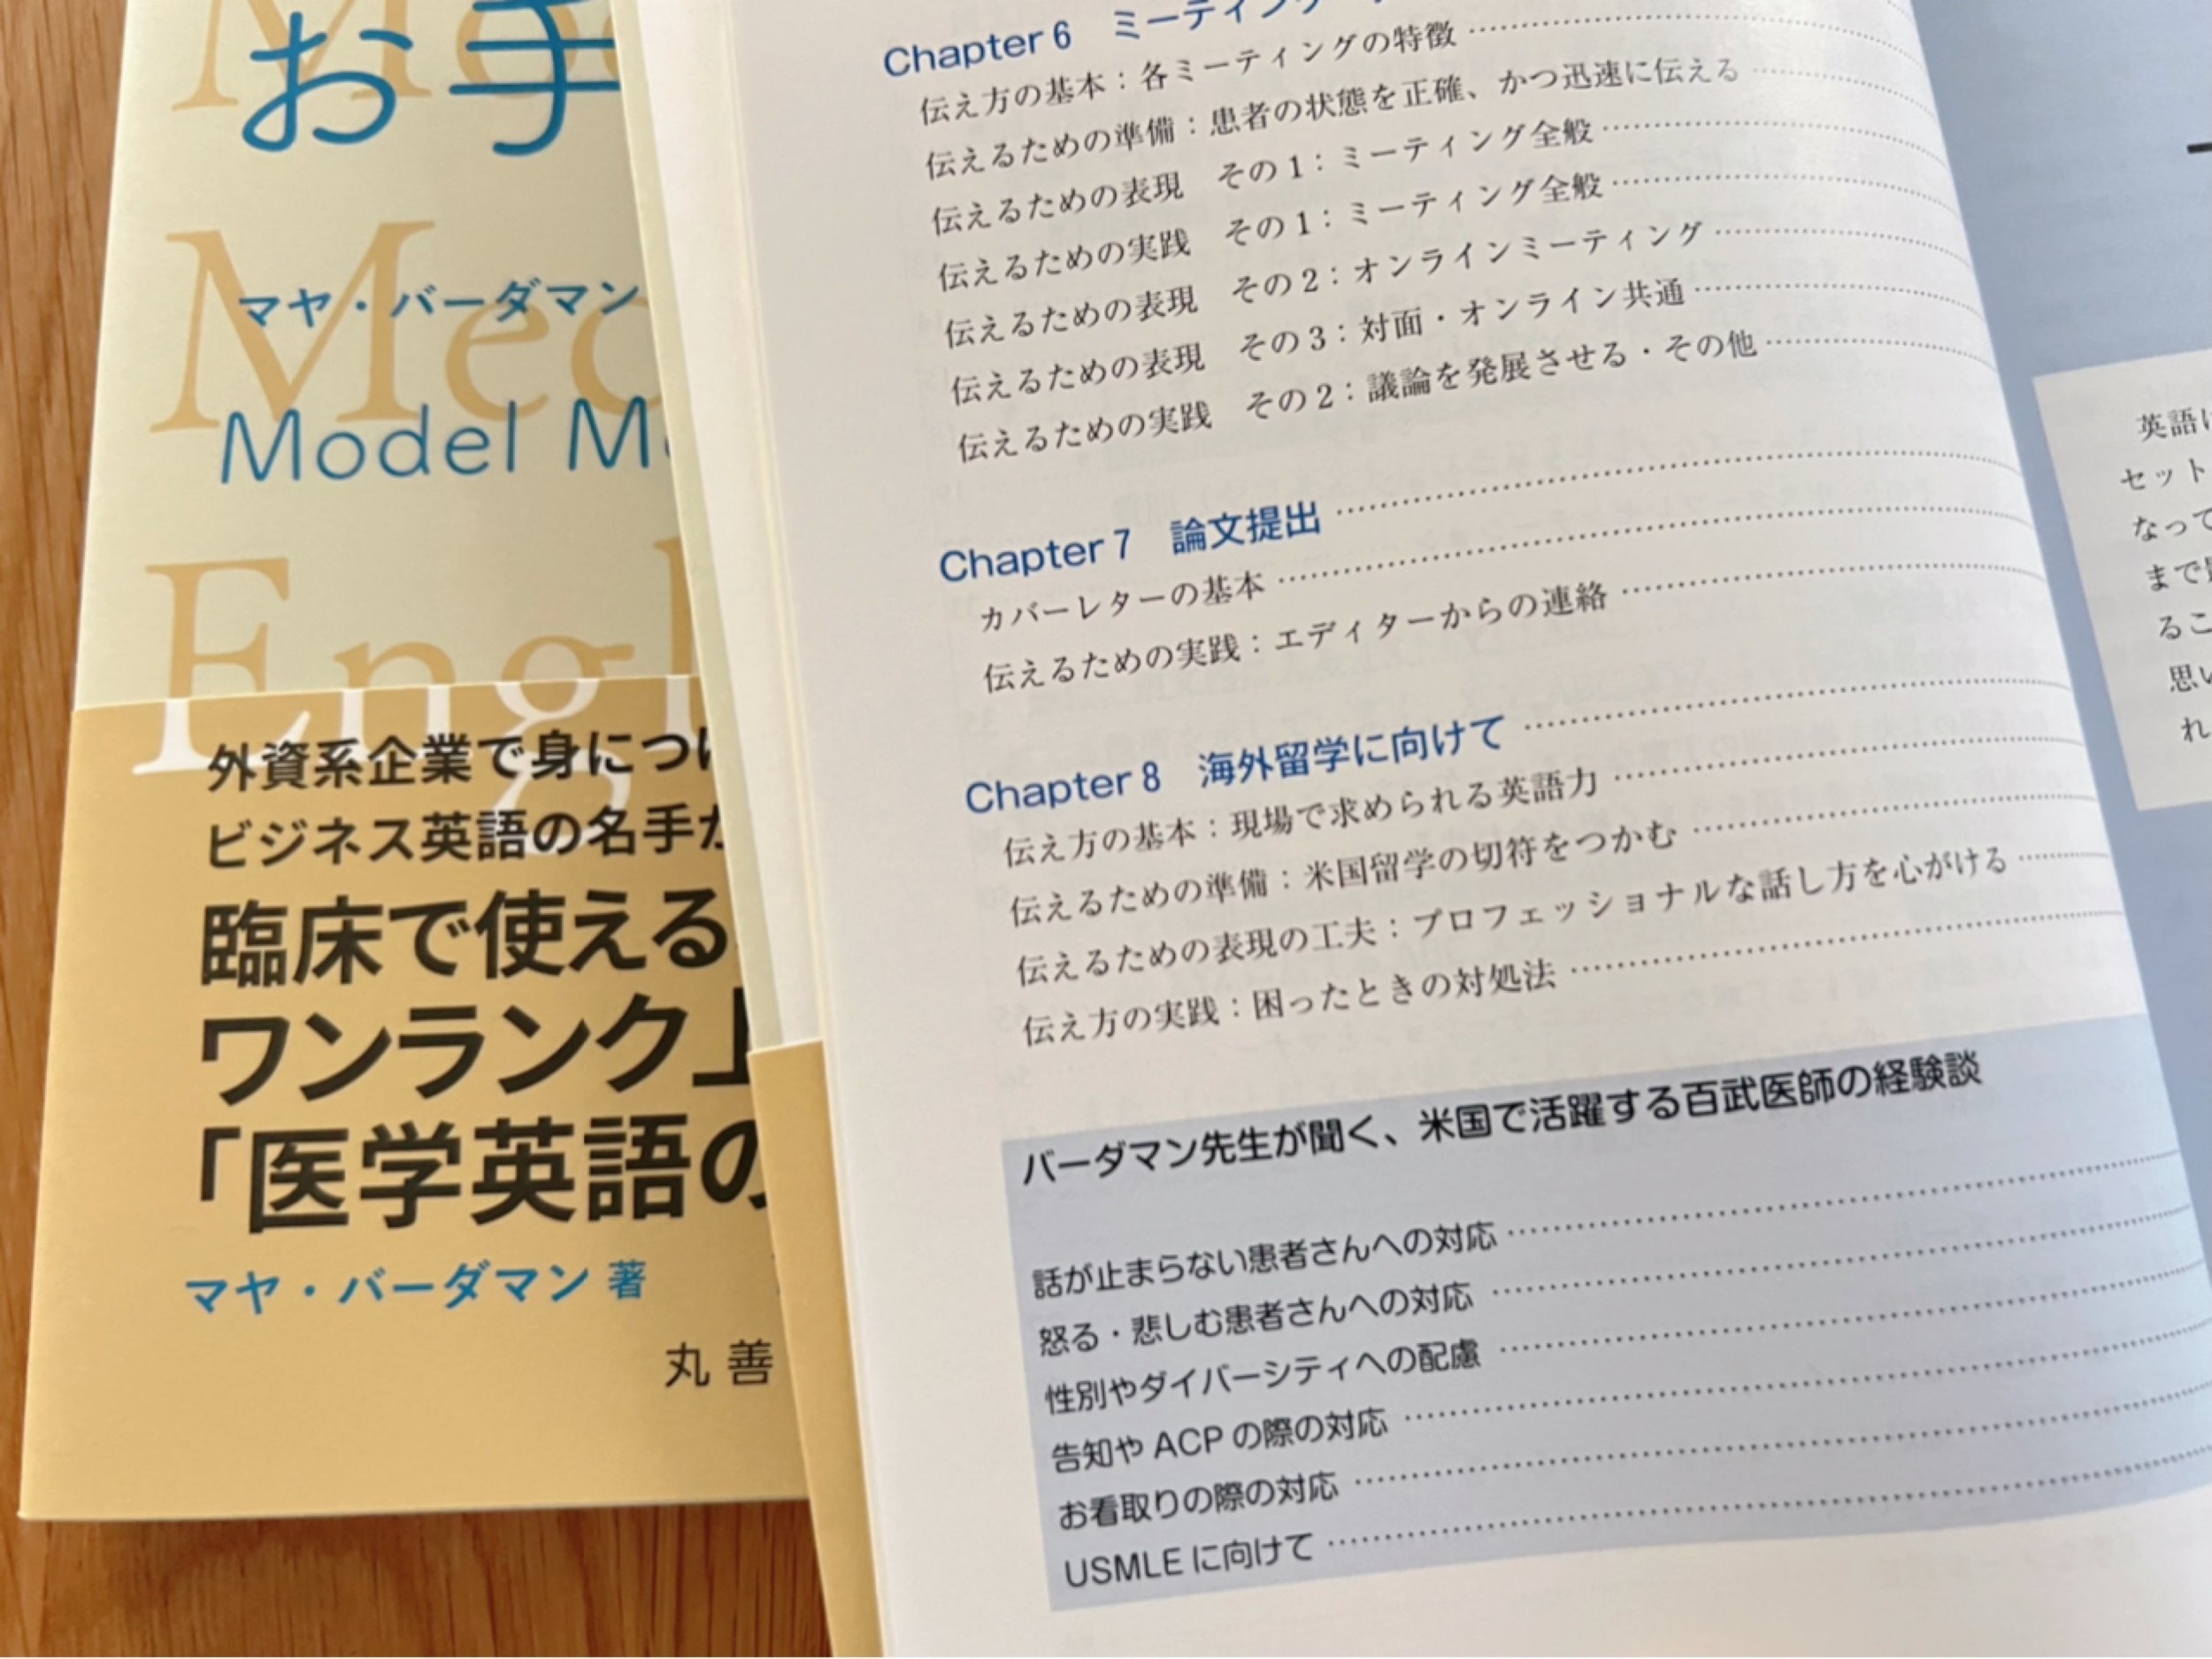 お手
Med
マヤ・バーダマン
Med
Model M
Engl
外資系企業で身につけ
ビジネス英語の名手が
臨床で使える
ワンランク上
「医学英語の
マヤ・バーダマン 著
丸善
Chapter 6 ミーティング
伝え方の基本：各ミーティングの特徴
伝えるための準備：患者の状態を正確、かつ迅速に伝える
伝えるための表現 その1：ミーティング全般
伝えるための実践 その1：ミーティング全般
伝えるための表現 その2：オンラインミーティング
伝えるための表現 その3：対面・オンライン共通
伝えるための実践 その2：議論を発展させる・その他
Chapter 7 論文提出
カバーレターの基本
伝えるための実践：エディターからの連絡
Chapter 8 海外留学に向けて
伝え方の基本：現場で求められる英語力
伝えるための準備：米国留学の切符をつかむ
伝えるための表現の工夫：プロフェッショナルな話し方を心がける
伝え方の実践：困ったときの対処法
バーダマン先生が聞く、米国で活躍する百武医師の経験談
話が止まらない患者さんへの対応
怒る・悲しむ患者さんへの対応
性別やダイバーシティへの配慮
告知や ACP の際の対応
お看取りの際の対応
USMLE に向けて
英語に
セット
なって
まで
るこ
思い
れ